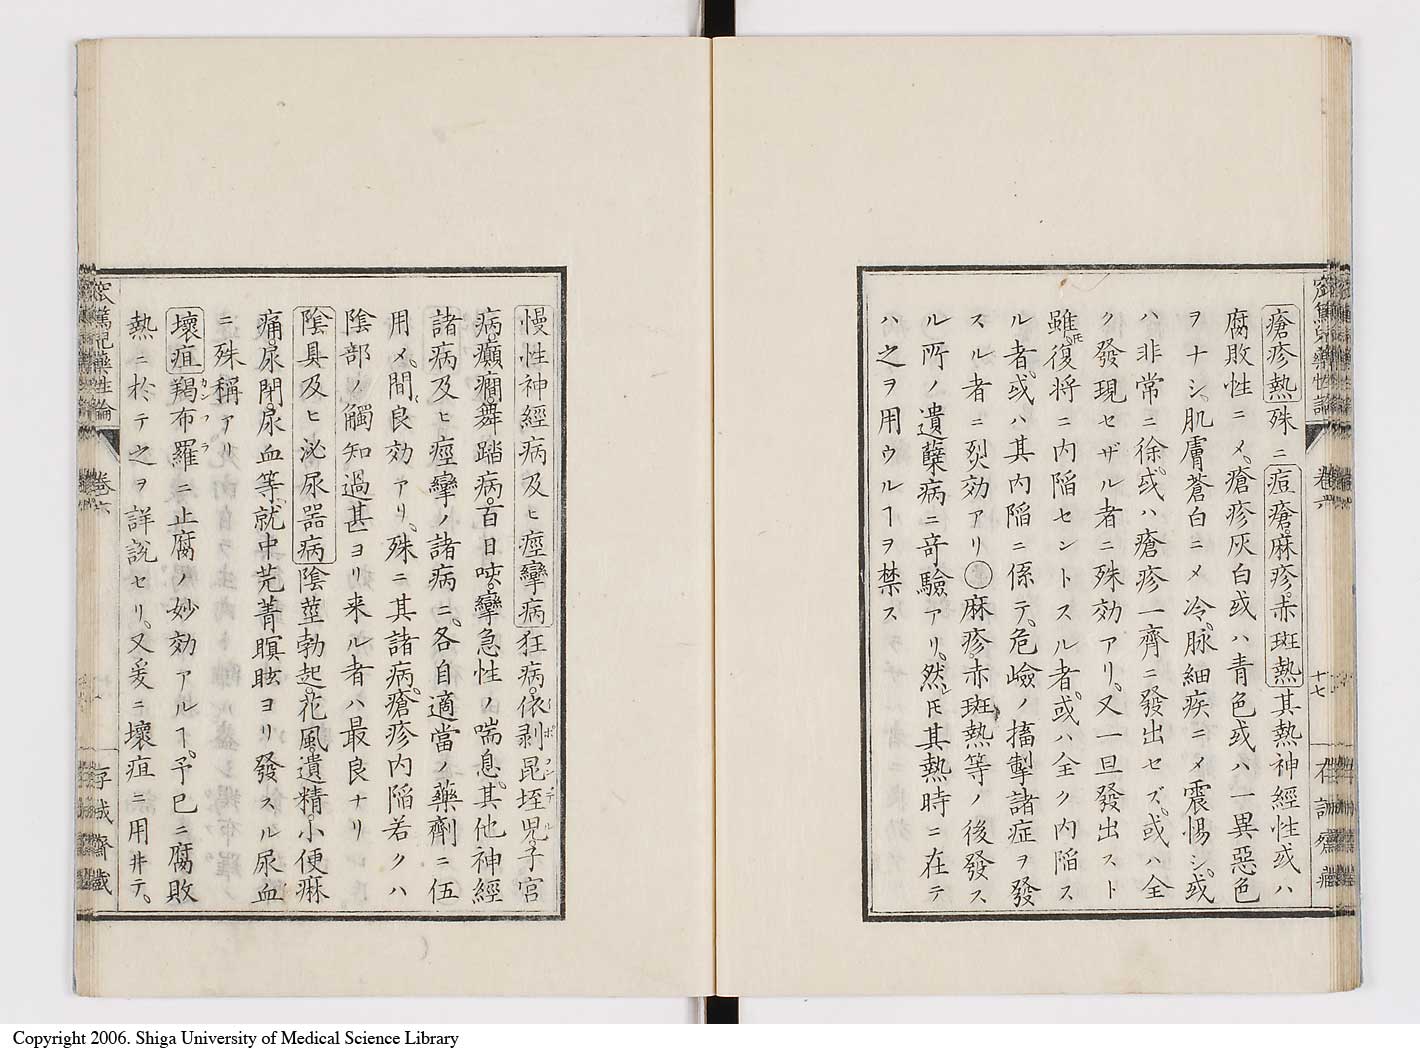 瘡疹熱殊ニ痘瘡。麻疹。赤斑熱其熱神經性或ハ
腐敗性ニ〆、瘡疹灰白或ハ青色或ハ一異惡色
ヲナシ、肌膚蒼白ニ〆冷、脉細疾ニ〆震惕シ、或
ハ非常ニ徐、或ハ瘡疹一齊ニ發出セズ、或ハ全
ク發現セザル者ニ殊効アリ、又一旦發出スト
雖𪜈復將ニ内陥セントスル者、或ハ全ク内陥ス
ル者、或ハ其内陥ニ係テ、危嶮ノ搐掣諸症ヲ發
スル者ニ烈効アリ○麻疹。赤斑熱等ノ後發ス
ル所ノ遺蘖病ニ竒驗アリ、然𪜈其熱時ニ在テ
ハ之ヲ用ウルヿヲ禁ス
卷六
十七
慢性神經病及ヒ痙攣病狂病。依剥昆垤児。子宮
イポコンデル
病。癲癇。舞踏病。百日咳。攣急性ノ喘息。其他神經
諸病及ヒ痙攣ノ諸病ニ、各自適當ノ藥劑ニ伍
用〆、間良効アリ、殊ニ其諸病、瘡疹内陥若クハ
陰部ノ觸知過甚ヨリ来ル者ハ最良ナリ
陰具及ヒ泌尿器病陰莖勃起。花風。遺精。小便痳
痛。尿閉。尿血等、就中芫菁瞑眩ヨリ發スル尿血
ニ殊稱アリ
壞疽羯布羅ニ止腐ノ妙効アルヿ、予已ニ腐敗
カンフラ
熱ニ於テ之ヲ詳說セリ、又爰ニ壞疽ニ用井テ、
藥性論
卷六
Copyright 2006. Shiga University of Medical Science Library